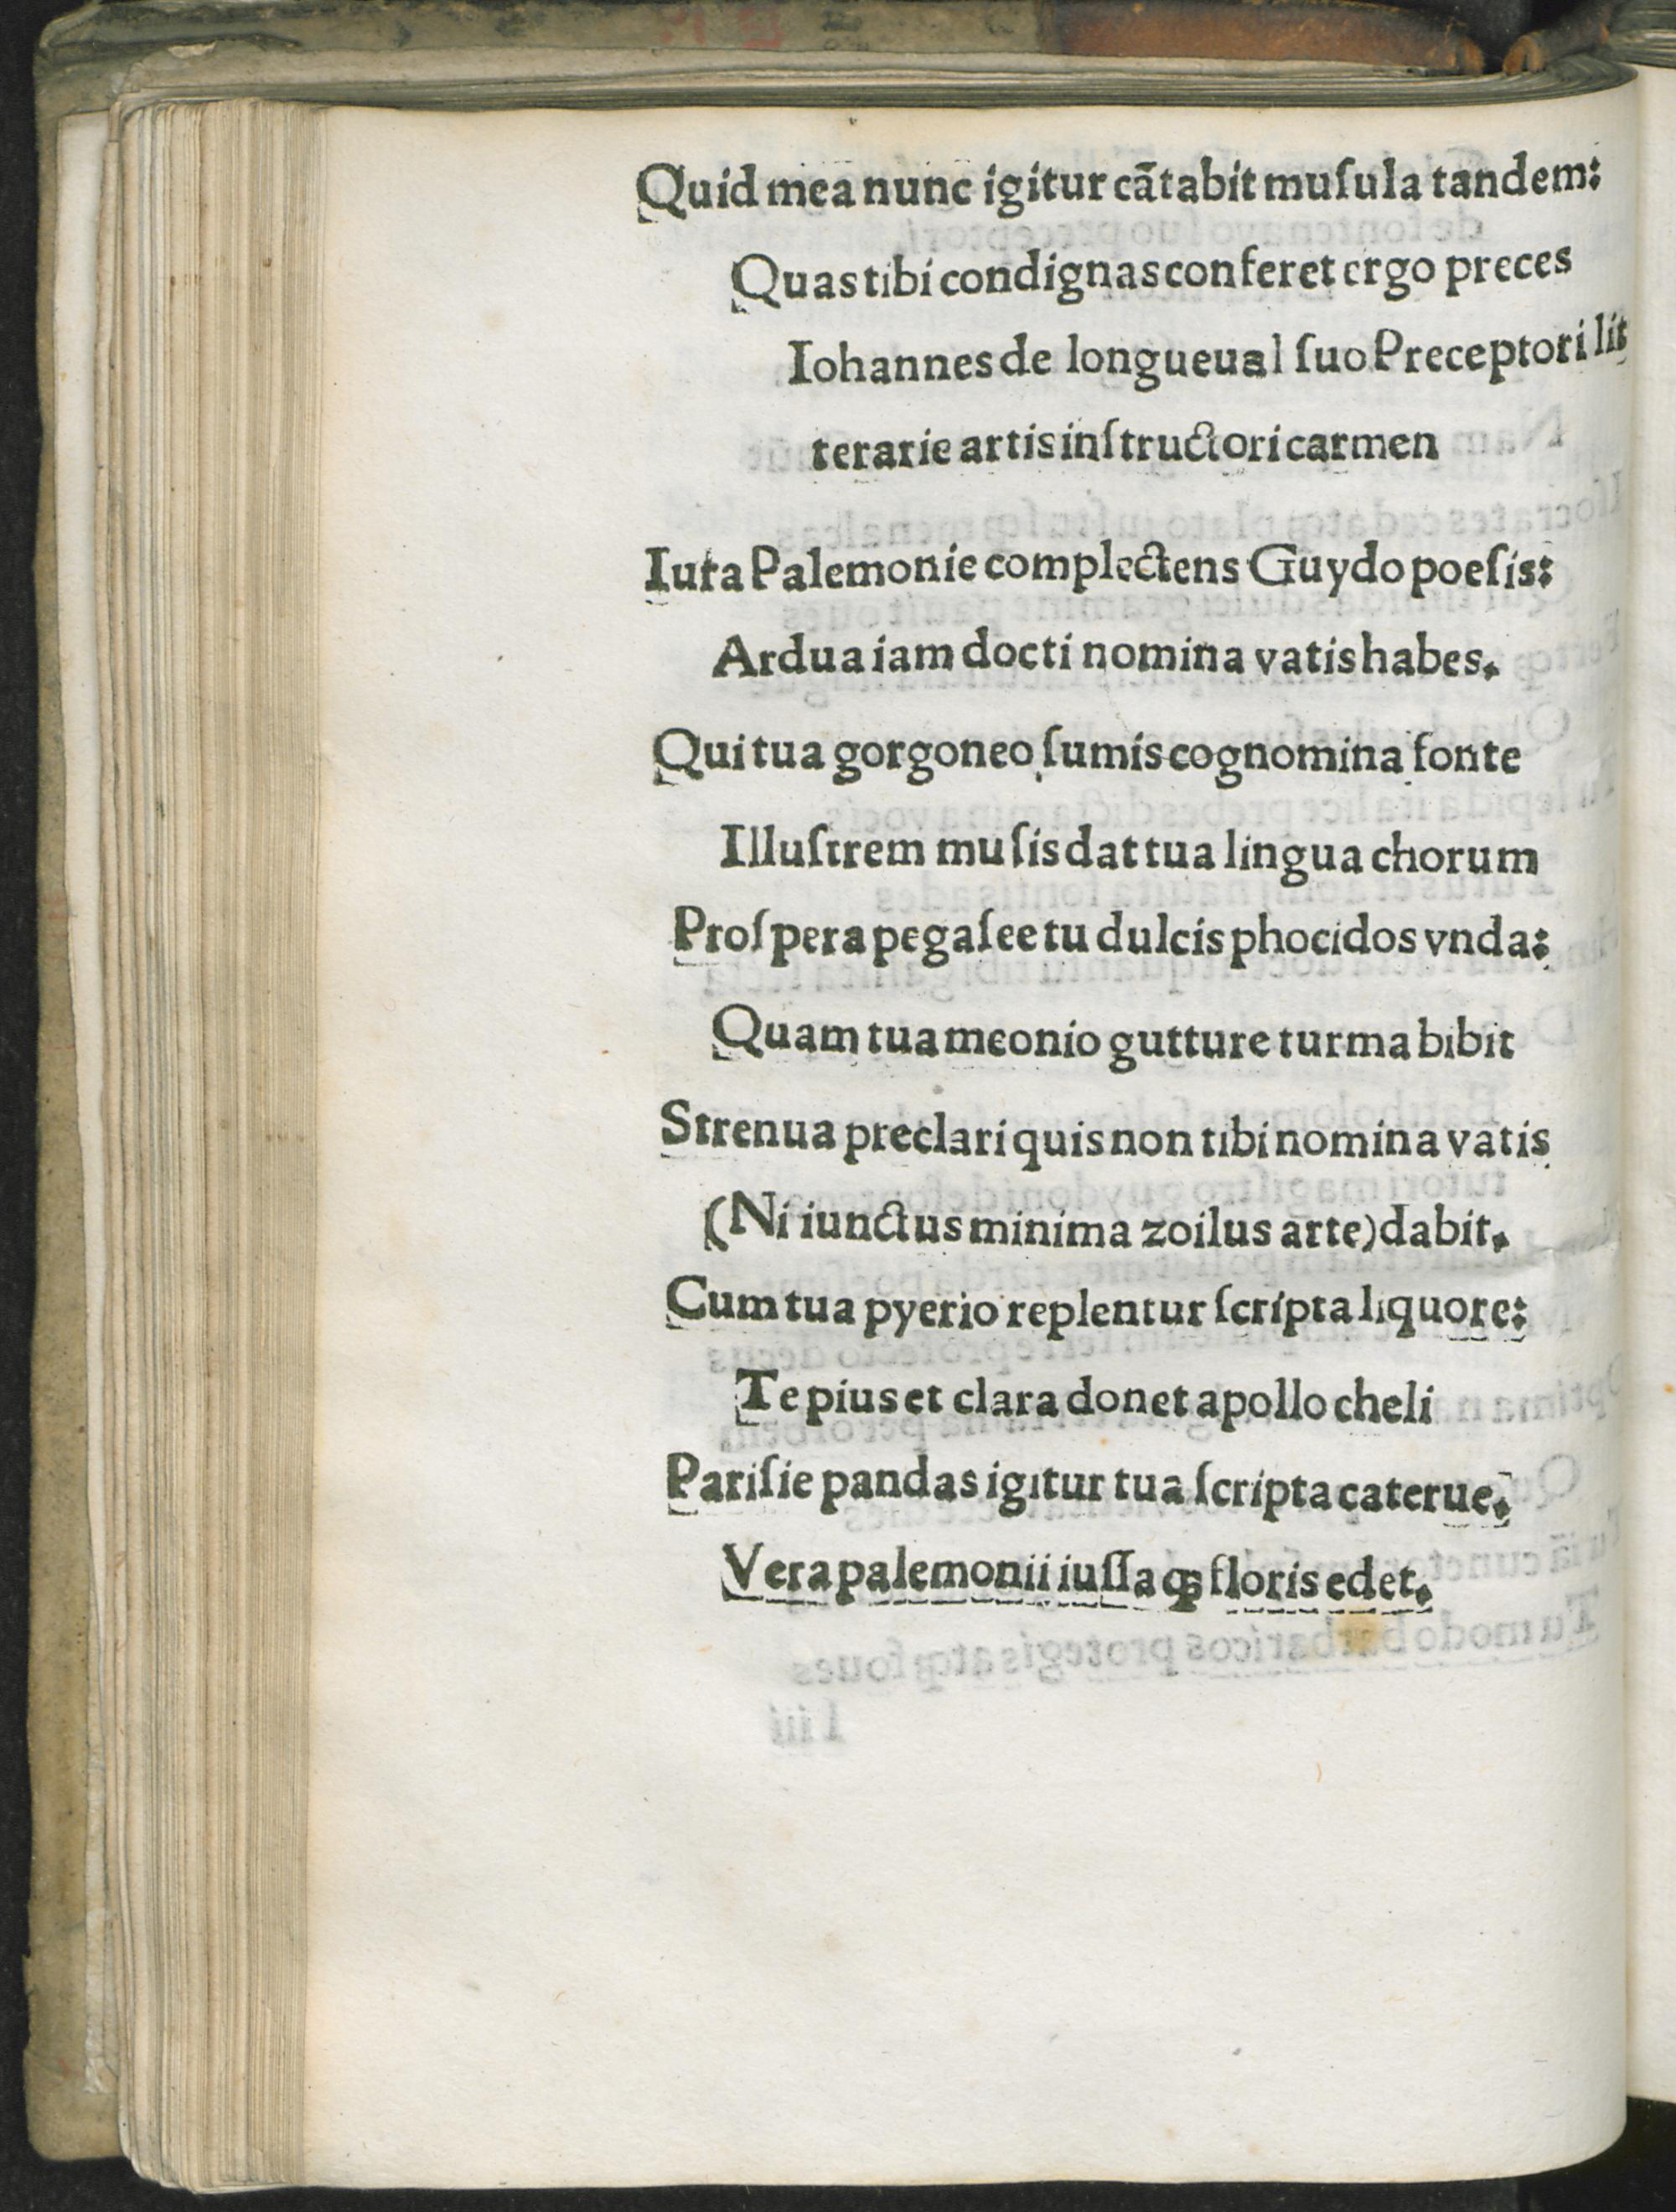 Quid mea nunc igitur cātabit muſula tandem:
Quas tibi condignas conferet ergo preces
Iohannes de longueual ſuo Preceptori lit
terarie artis inſtructori carmen
Iura Palemonie complectens Guydo poeſis:
Ardua iam docti nomina vatis habes.
Qui tua gorgoneo ſumis cognomina fonte
Illuſtrem muſis dat tua lingua chorum
Proſpera pegaſee tu dulcis phocidos vnda:
Quam tua meonio gutture turma bibit
Strenua preclari quis non tibi nomina vatis
(Ni iunctus minima zoilus arte) dabit.
Cum tua pyerio replentur ſcripta liquore:
Te pius et clara donet apollo cheli
Pariſie pandas igitur tua ſcripta caterue.
Vera palemonii iuſſa qꝫ floris edet.